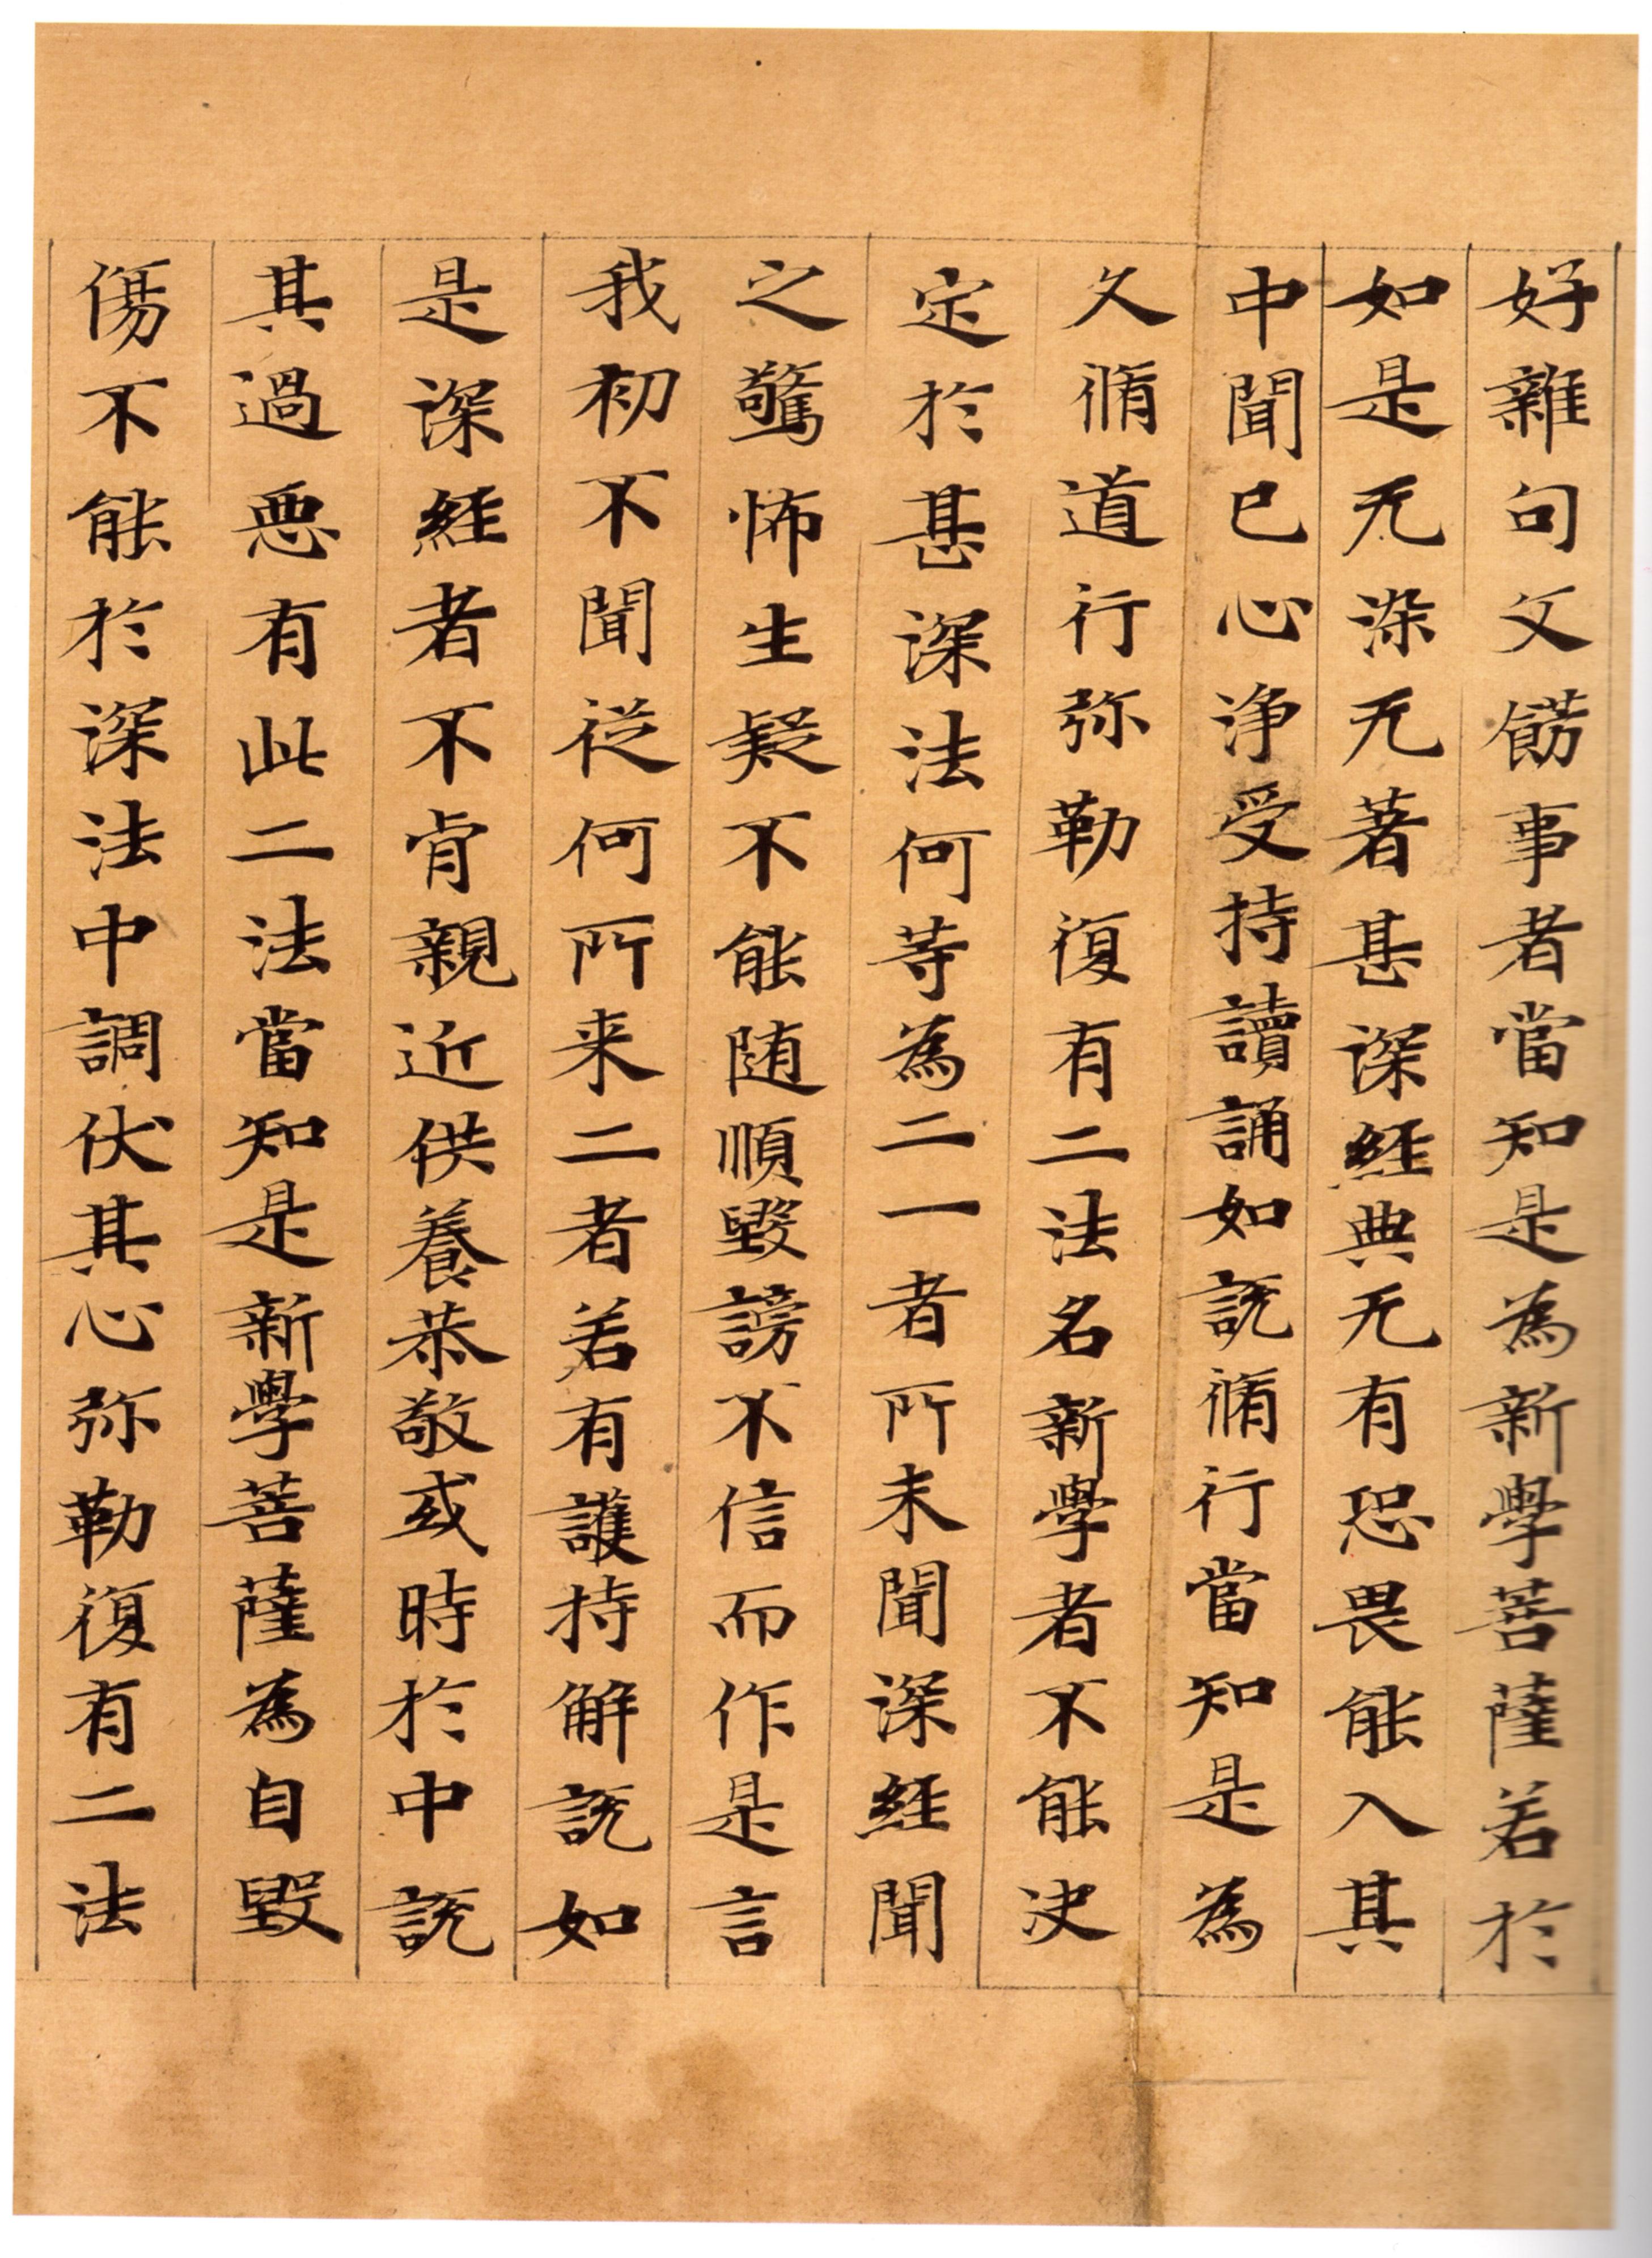 好雜句文餝事者當知是為新學菩薩若於
如是无染无著甚深經典无有恐畏能入其
中聞已心淨受持讀誦如說脩行當知是為
久脩道行弥勒復有二法名新學者不能决
定於甚深法何等為二一者所未聞深經聞
之驚怖生疑不能随順毀謗不信而作是言
我初不聞從何所来二者若有護持解說如
是深經者不肯親近供養恭敬或時於中說
其過惡有此二法當知是新學菩薩為自毀
傷不能於深法中調伏其心弥勒復有二法